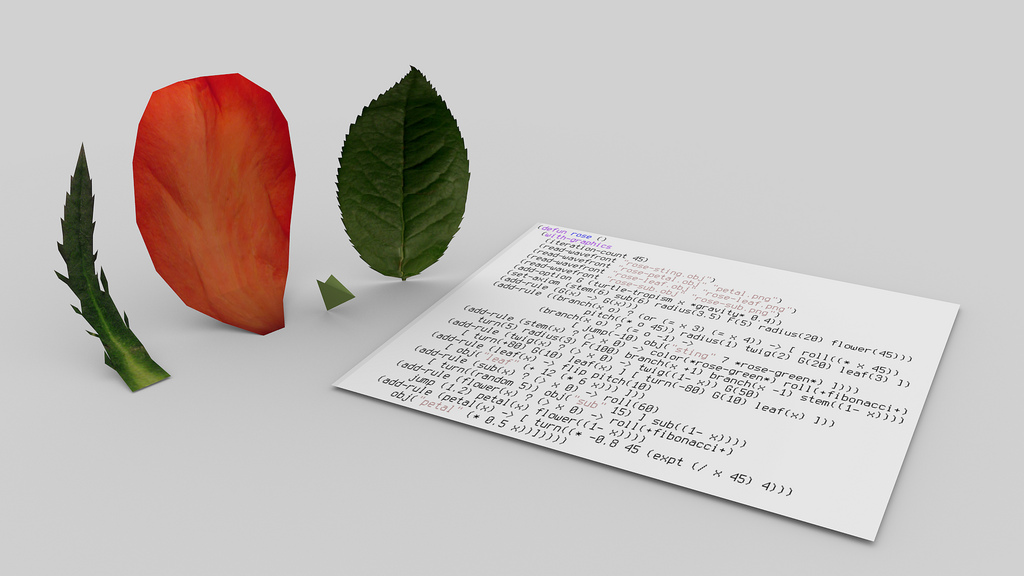 (defun rose ()
(with-graphics
(iteration-count 45)
(read-wavefront "rose-sting.obj")
(read-wavefront "rose-petal.obj" "petal.png")
(read-wavefront "rose-leaf.obj" "rose-leaf.png")
(read-wavefront "rose-sub.obj" "rose-sub.png")
(add-option G (turtle-tropism x *gravity* 0.4))
(set-axiom (stem(6) sub(6) radius(3.5) f(5) radius(20) flower(45)))
(add-rule (G(x) -> G(x)))
(add-rule ((branch(x o) ? (or (= x 3) (= x 4)) -> { roll((* x 45))
pitch((+ o 45)) radius(1) twig(2) G(20) leaf(3) ])
(branch(x o) ? (= -1) ->
[ jump(-10) obj("sting") ]
(add-rule (stem(x) ? (> x 0) -> color(*rose-green* *rose-green*) ])))
turn(5) radius(3) G(100) branch(x +1) branch(x -1) stem((1- x))))
(add-rule (twig(x) ? (> x 0) -> roll(+fibonacci+)
[ turn(+80) G(10) leaf(x) ] [ turn(-80) G(10) leaf(x) ]))
(add-rule (leaf(x) -> [ flip pitch(10)
obj("leaf" (+ 12 (* 6 x)))]))
(add-rule (sub(x) ? (> x 0) -> roll(60)
[turn((random 5)) obj("sub" 15) ] sub((1- x))))
(add-rule (flower(x) ? (> x 0) -> roll(+fibonacci+)
jump (1.2) petal(x) flower((1- x))))
(add-rule (petal(x) -> [ turn((* -0.8 45 (expt (/ x 45) 4)))
obj("petal" (* 0.5 x))]))))